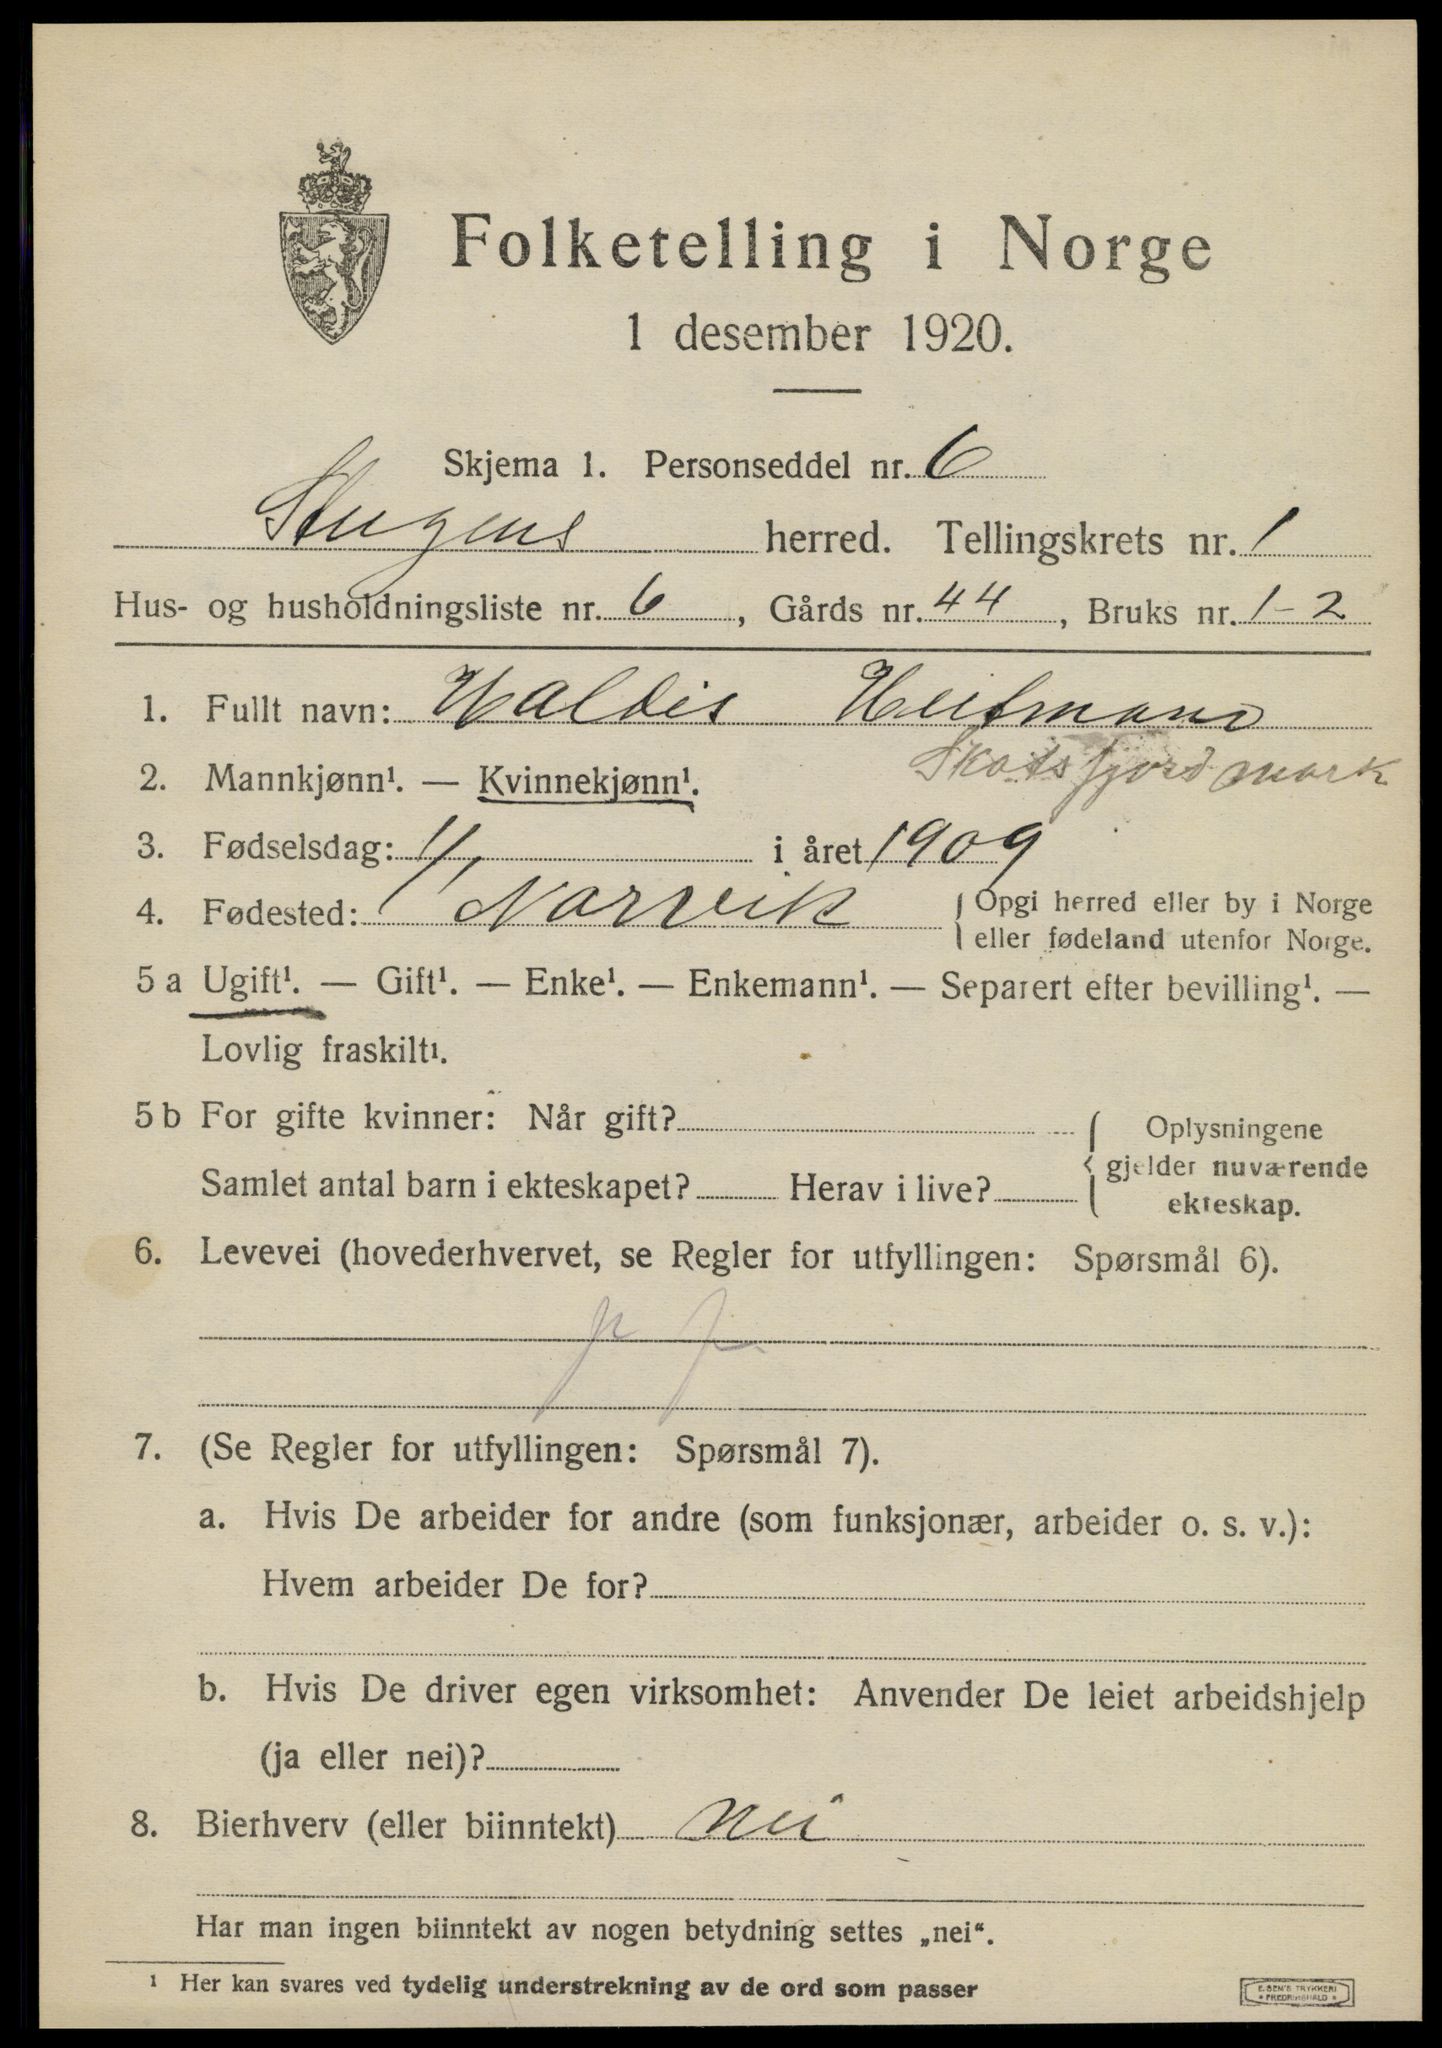 Folketelling i Norge
1 desember 1920.
Skjema 1. Personseddel nr. 6
Steigens herred. Tellingskrets nr. 1
Hus- og husholdningsliste nr. 6, Gårds nr. 44, Bruks nr. 1-2
1. Fullt navn: Haldis Heitmann
Skotsfjordmark
2. Mannkjønn¹. — Kvinnekjønn¹.
3. Fødselsdag: 1/1 i året 1909
4. Fødested: Narvik { Opgi herred eller by i Norge
eller fødeland utenfor Norge.
5 a Ugift¹. — Gift¹. — Enke¹. — Enkemann¹. — Separert efter bevilling¹. —
Lovlig fraskilt¹.
5 b For gifte kvinner: Når gift?
Samlet antal barn i ekteskapet? Herav i live?
Oplysningene
gjelder nuværende
ekteskap.
6. Levevei (hovederhvervet, se Regler for utfyllingen: Spørsmål 6).
7. (Se Regler for utfyllingen: Spørsmål 7).
a. Hvis De arbeider for andre (som funksjonær, arbeider o. s. v.):
Hvem arbeider De for?
b. Hvis De driver egen virksomhet: Anvender De leiet arbeidshjelp
(ja eller nei)?
8. Bierhverv (eller biinntekt) nei
Har man ingen biinntekt av nogen betydning settes „nei“.
¹ Her kan svares ved tydelig understrekning av de ord som passer
E. SEM'S TRYKKERI
FREDRIKSHALD